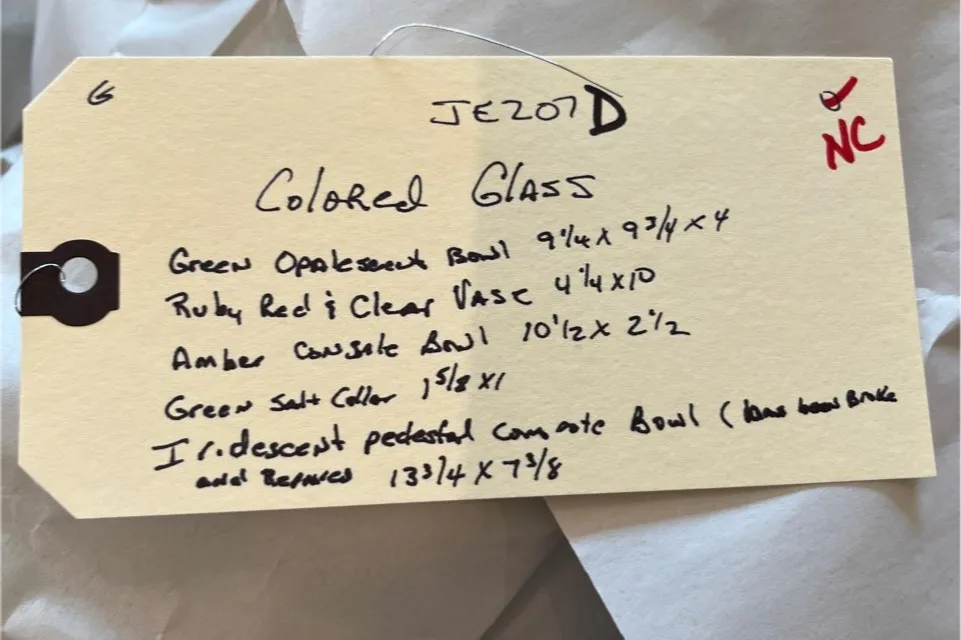 G
JE207D
NC
Colored Glass
Green Opalescent Bowl 9 1/4 x 9 3/4 x 4
Ruby Red & Clear Vase 4 1/4 x 10
Amber Console Bowl 10 1/2 x 2 1/2
Green Salt Cellar 1 5/8 x 1
Iridescent pedestal compote Bowl (has been Broke
and Repaired 13 3/4 x 7 3/8